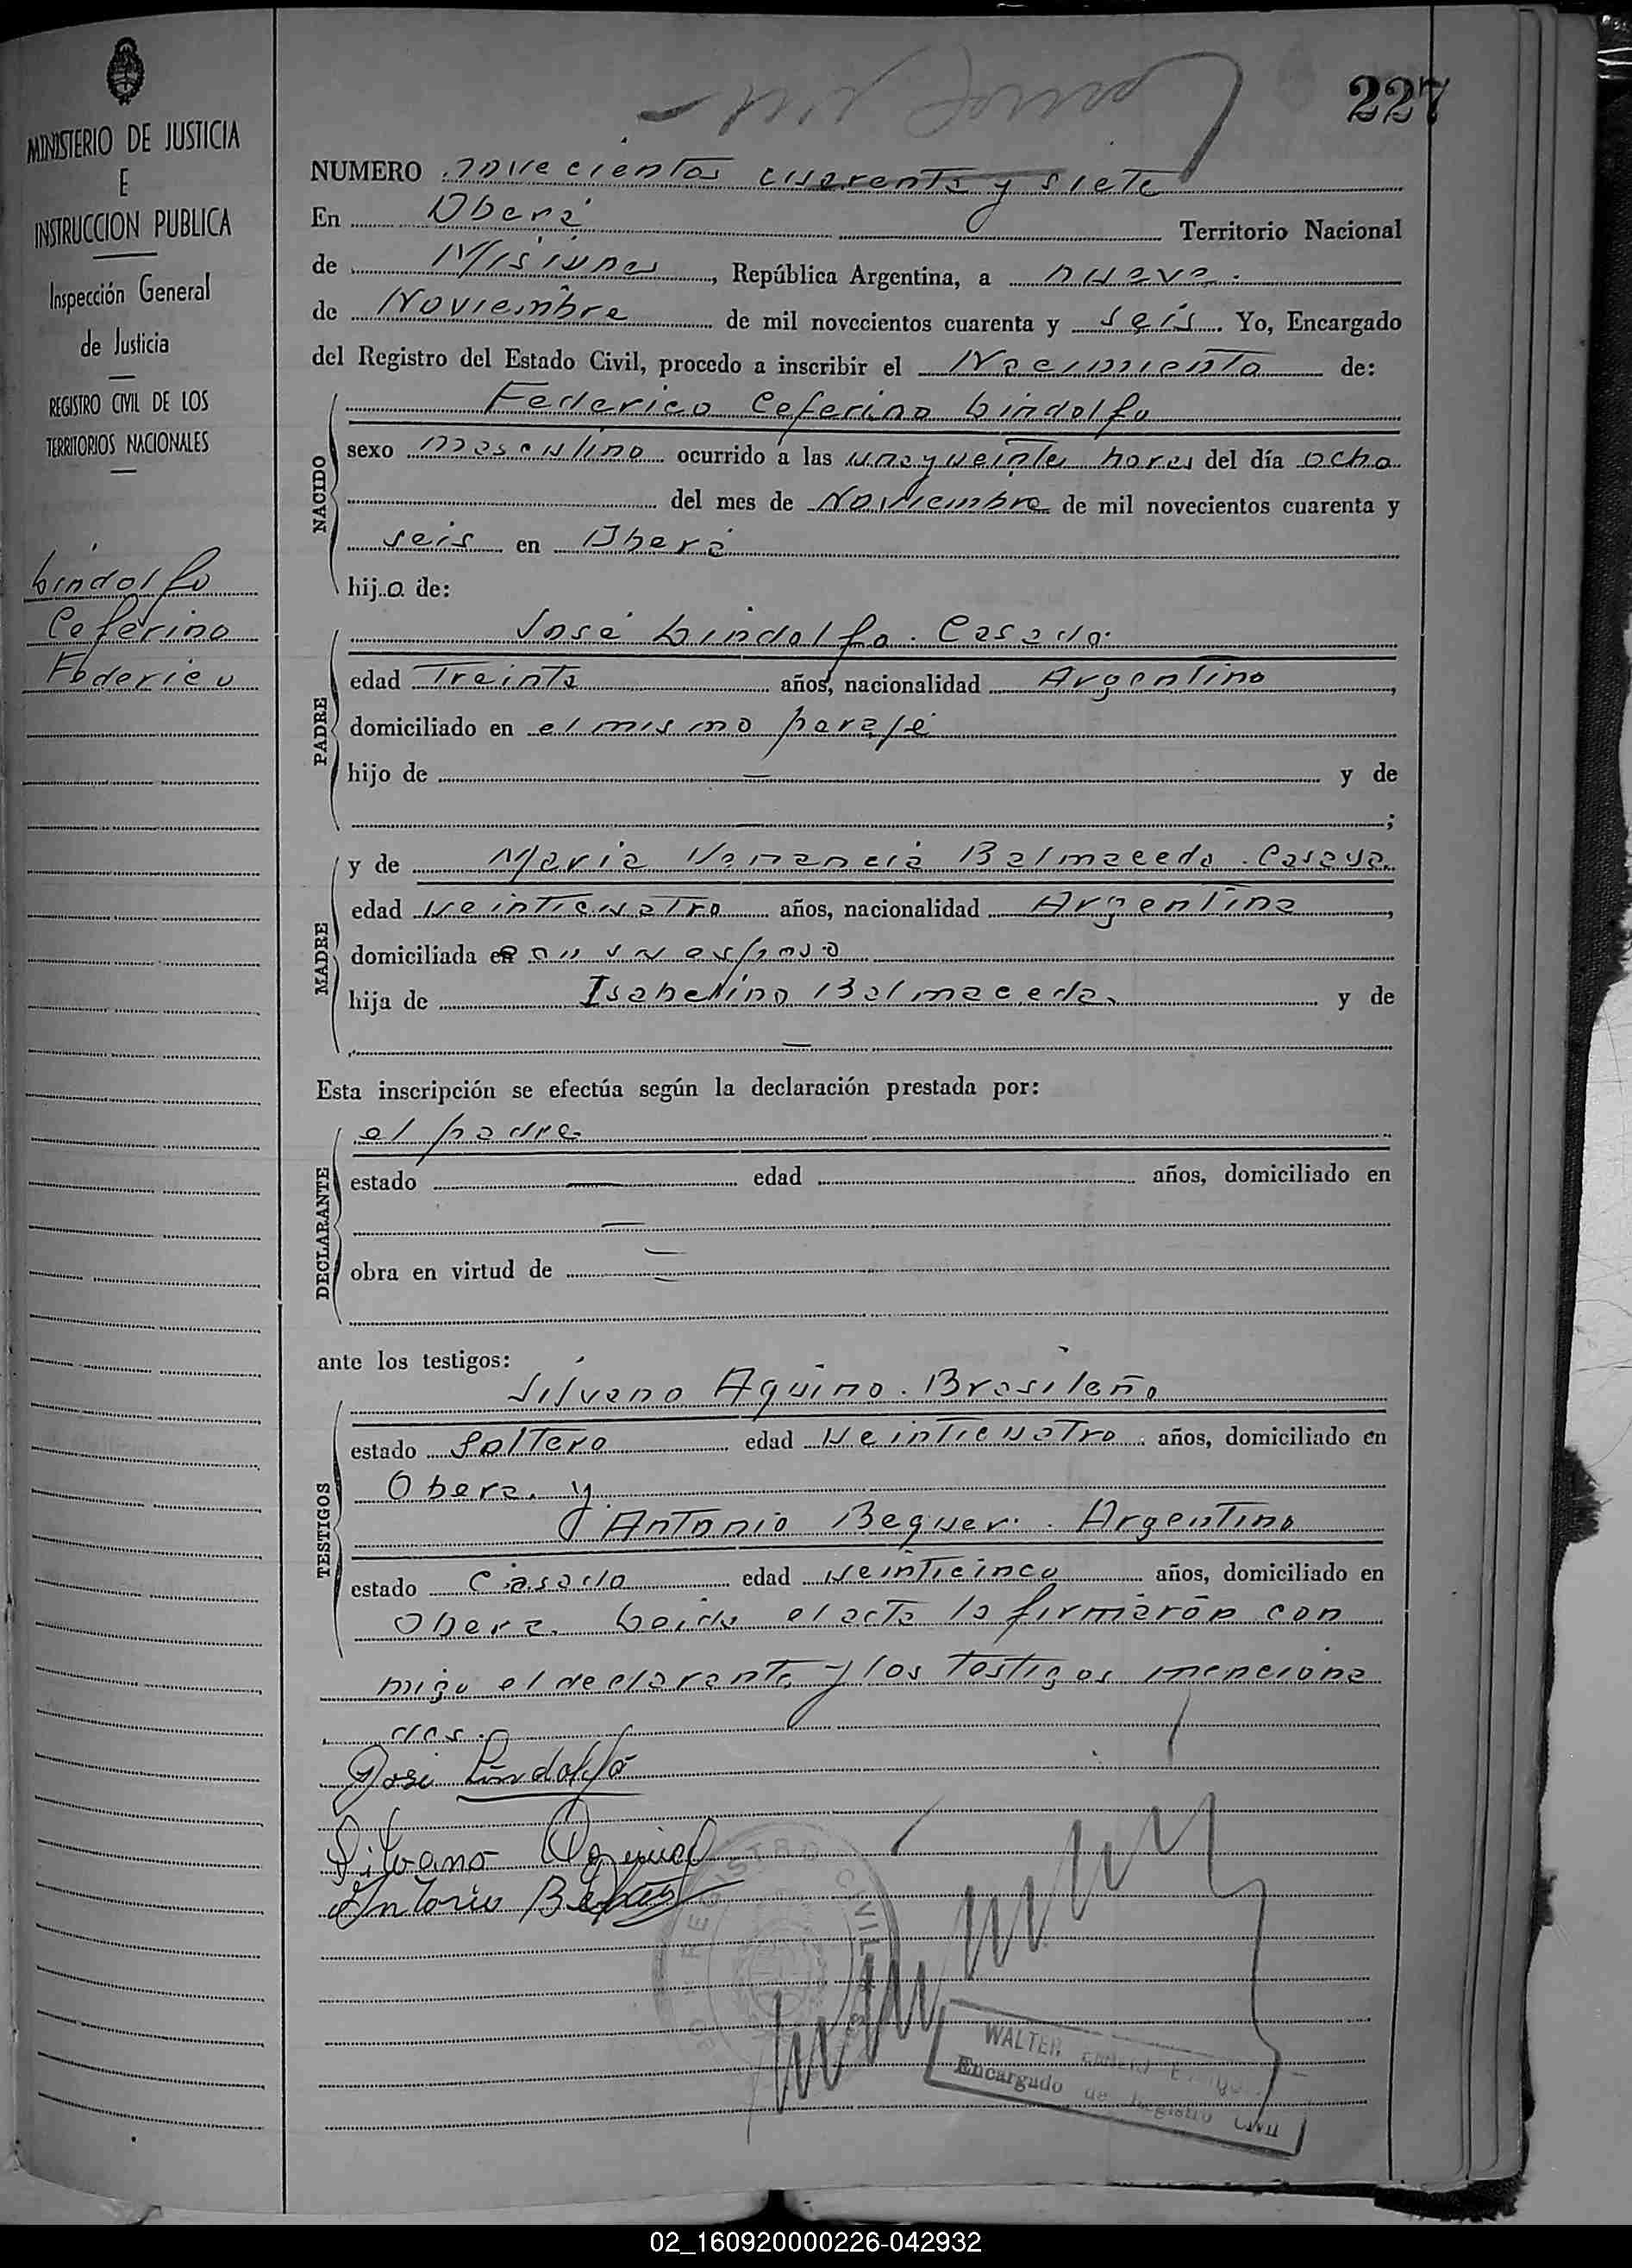 227
MINISTERIO DE JUSTICIA
E
INSTRUCCION PUBLICA
Inspección General
de Justicia
REGISTRO CIVIL DE LOS
TERRITORIOS NACIONALES
Lindolfo
Ceferino
Federico
NUMERO novecientos cuarenta y siete
En Oberá Territorio Nacional
de Misiones, República Argentina, a nueve
de Noviembre de mil novecientos cuarenta y seis. Yo, Encargado
del Registro del Estado Civil, procedo a inscribir el Nacimiento de:
NACIDO
Federico Ceferino Lindolfo
sexo masculino ocurrido a las una y veinte horas del día ocho
del mes de Noviembre de mil novecientos cuarenta y
seis en Oberá
hijo de:
PADRE
José Lindolfo. Casado.
edad Treinta años, nacionalidad Argentino,
domiciliado en el mismo paraje
hijo de — y de
— ;
MADRE
y de Maria Venancia Balmaceda. Casada.
edad veinticuatro años, nacionalidad Argentina,
domiciliada con su esposo
hija de Isabelino Balmaceda. y de
—
Esta inscripción se efectúa según la declaración prestada por:
DECLARANTE
el padre
estado — edad años, domiciliado en
—
obra en virtud de —
ante los testigos:
TESTIGOS
Silvano Aquino. Brasileño
estado Soltero edad veinticuatro años, domiciliado en
Obera. y
Antonio Bequer. Argentino
estado Casado edad veinticinco años, domiciliado en
Obera. Leida el acta la firmarón con
migo el declarante y los testigos menciona
dos.
José Lindolfo
Silvano Aquino
Antonio
REGISTRO CIVIL
WALTER
Encargado de Registro Civil
02_160920000226-042932